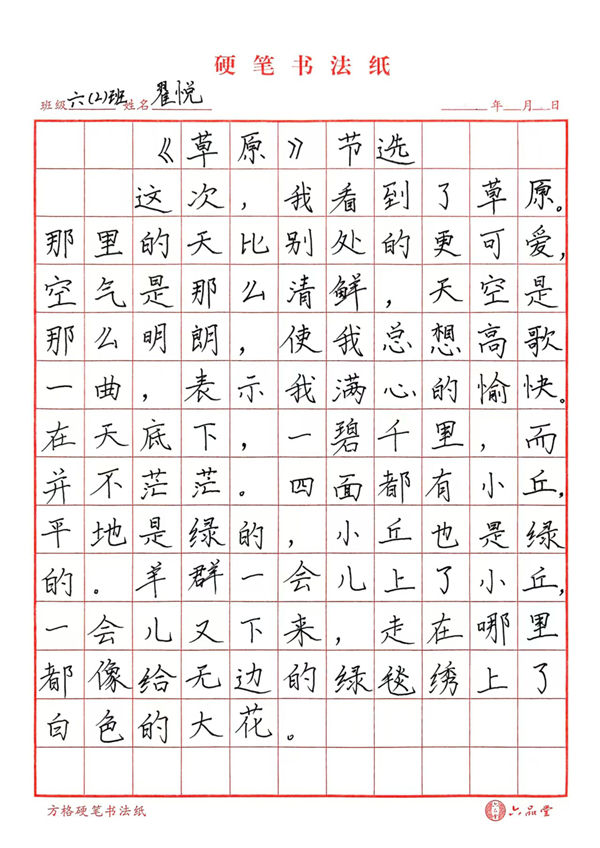 硬笔书法纸
班级 六(2)班 姓名 翟悦 年 月 日
《草原》节选
这次，我看到了草原。
那里的天比别处的更可爱，
空气是那么清鲜，天空是
那么明朗，使我总想高歌
一曲，表示我满心的愉快。
在天底下，一碧千里，而
并不茫茫。四面都有小丘，
平地是绿的，小丘也是绿
的。羊群一会儿上了小丘，
一会儿又下来，走在哪里
都像给无边的绿毯绣上了
白色的大花。
方格硬笔书法纸 六品堂